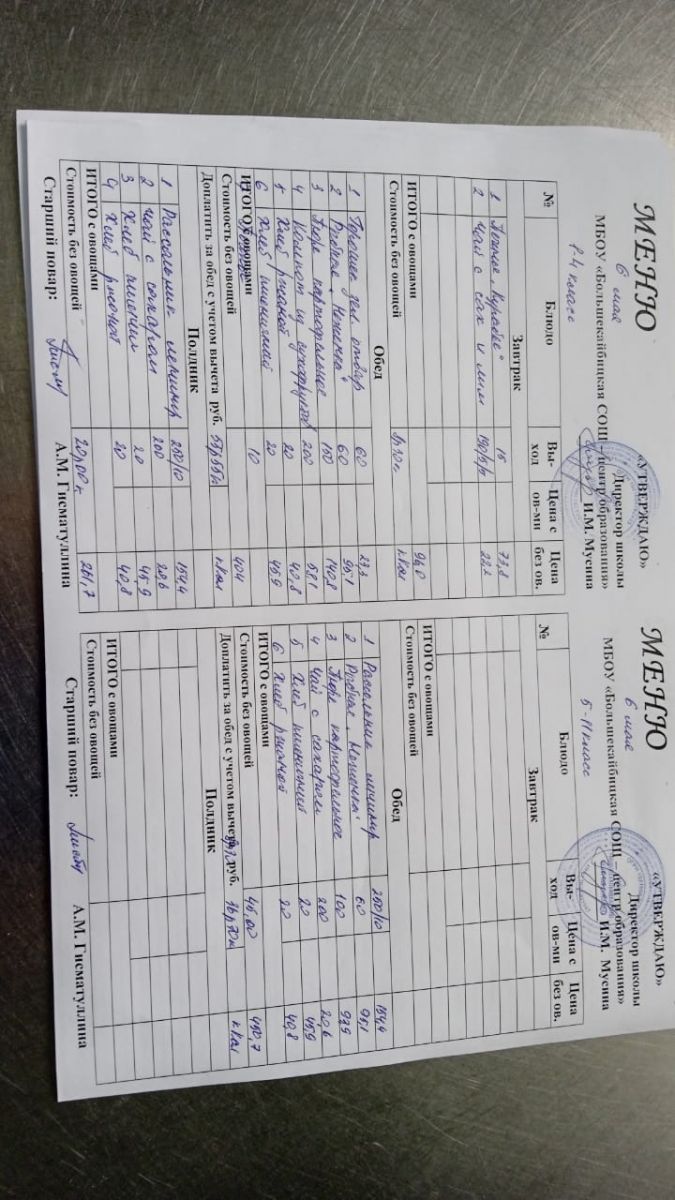 «УТВЕРЖДАЮ»
Директор школы
МЕНЮ
МБОУ «Большекайбицкая СОШ – центр образования»
И.М. Мусина
6 мая
1-4 класс
№ Блюдо Вы-ход Цена с ов-ми Цена без ов.
Завтрак
1 15 73,8
2 Чай с сах и лим 190/5/5 22,2
ИТОГО с овощами 96,0
Стоимость без овощей ккал
Обед
1 Горошек зел отвар 60 23,3
2 Рыбные "Неженка" 60 95,1
3 Пюре картофельное 150 140,8
4 Компот из сухофруктов 200 58,1
5 Хлеб ржаной 20 40,8
6 Хлеб пшеничный 20 45,9
10
ИТОГО с овощами 404
Стоимость без овощей ккал
Доплатить за обед с учетом вычета руб.
Полдник
1 Рассольник ленингр 250/10 154,4
2 Чай с сахаром 200 20,6
3 Хлеб пшенич 20 45,9
4 Хлеб ржаной 20 40,8
ИТОГО с овощами
Стоимость без овощей 261,7
Старший повар: А.М. Гисматуллина
«УТВЕРЖДАЮ»
Директор школы
МЕНЮ
МБОУ «Большекайбицкая СОШ – центр образования»
И.М. Мусина
6 мая
5-11 класс
№ Блюдо Вы-ход Цена с ов-ми Цена без ов.
Завтрак
ИТОГО с овощами
Стоимость без овощей
Обед
1 Рассольник ленингр 250/10 154,4
2 Рыбная "Неженка" 60 95,1
3 Пюре картофельное 100 93,9
4 Чай с сахаром 200 20,6
5 Хлеб пшеничный 20 45,9
6 Хлеб ржаной 20 40,8
ИТОГО с овощами
Стоимость без овощей 45,00 450,7
Доплатить за обед с учетом вычета руб. 36р70к ккал
Полдник
ИТОГО с овощами
Стоимость без овощей
Старший повар: А.М. Гисматуллина